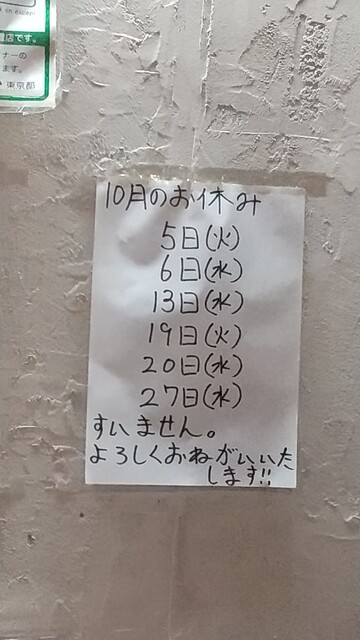 on except
店です。
ナーの
ます。
東京都
10月のお休み
5日(火)
6日(水)
13日(水)
19日(火)
20日(水)
27日(水)
すいません。
よろしくおねがいいた
します!!